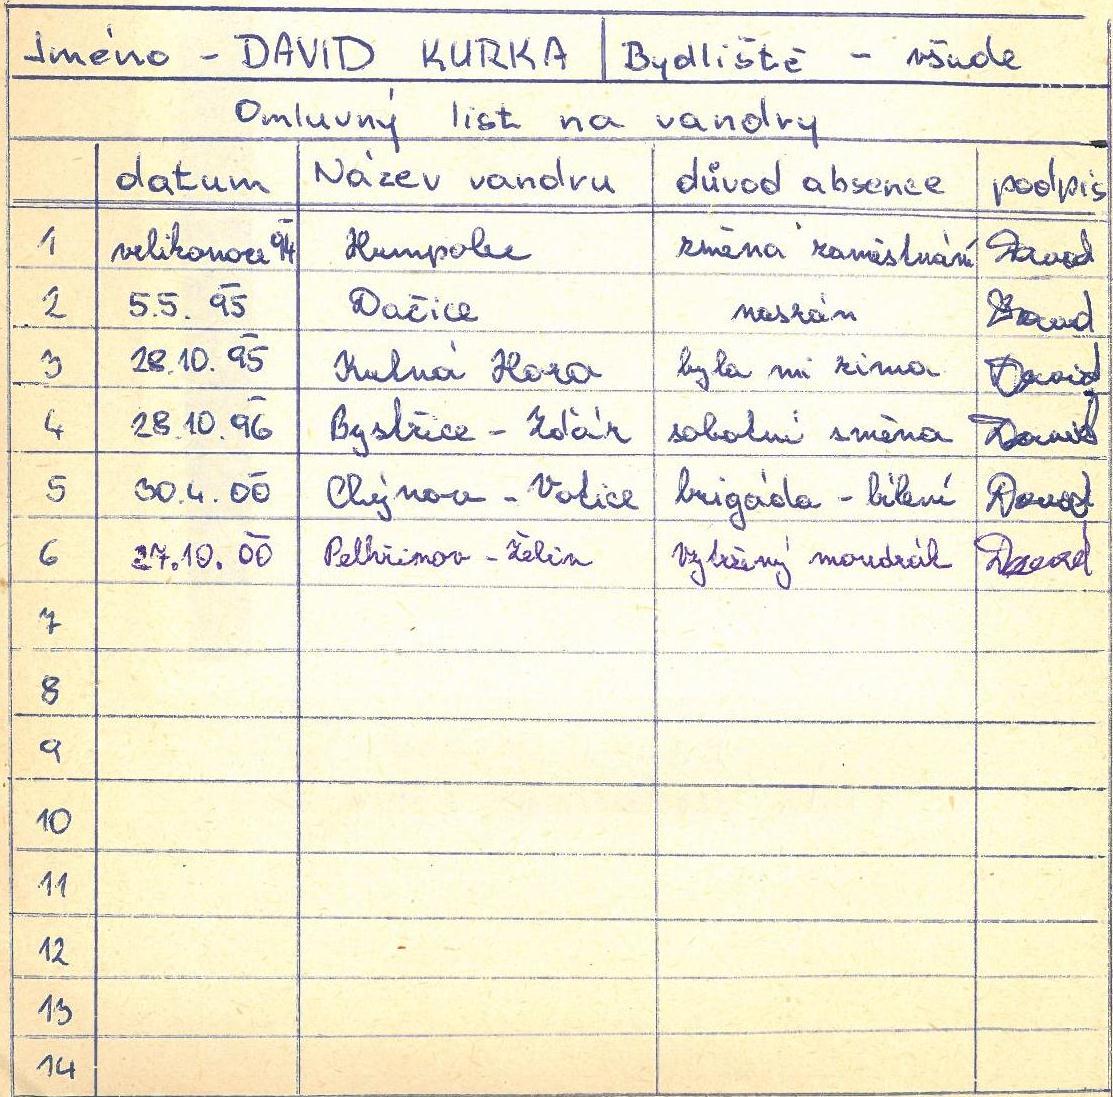 Jméno - DAVID KURKA | Bydliště - všude
Omluvný list na vandry
datum Název vandru důvod absence podpis
1 velikonoce 94 Humpolec změna zaměstnání David
2 5.5. 95 Dačice nasrán David
3 28.10. 95 Kutná Hora byla mi zima David
4 28.10. 96 Bystřice - Žďár sobotní směna David
5 30.4. 00 Chýnov - Votice brigáda - bílení David
6 27.10. 00 Pelhřimov - Želiv vytržený moudrák David
7
8
9
10
11
12
13
14